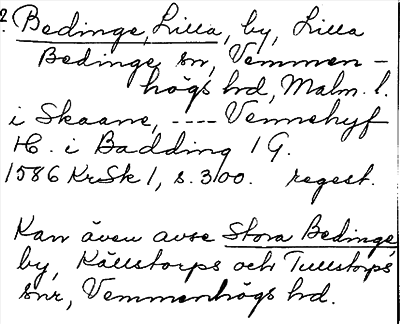 2. Bedinge, Lilla, by, Lilla
Bedinge sn, Vemmen-
högs hd, Malm. l.
i Skaane, ---- Vennehyf
H. i Badding 1 G.
1586 KrSk 1, s. 300. regest.
Kan även avse Stora Bedinge,
by, Källstorps och Tullstorps
snr, Vemmenhögs hd.